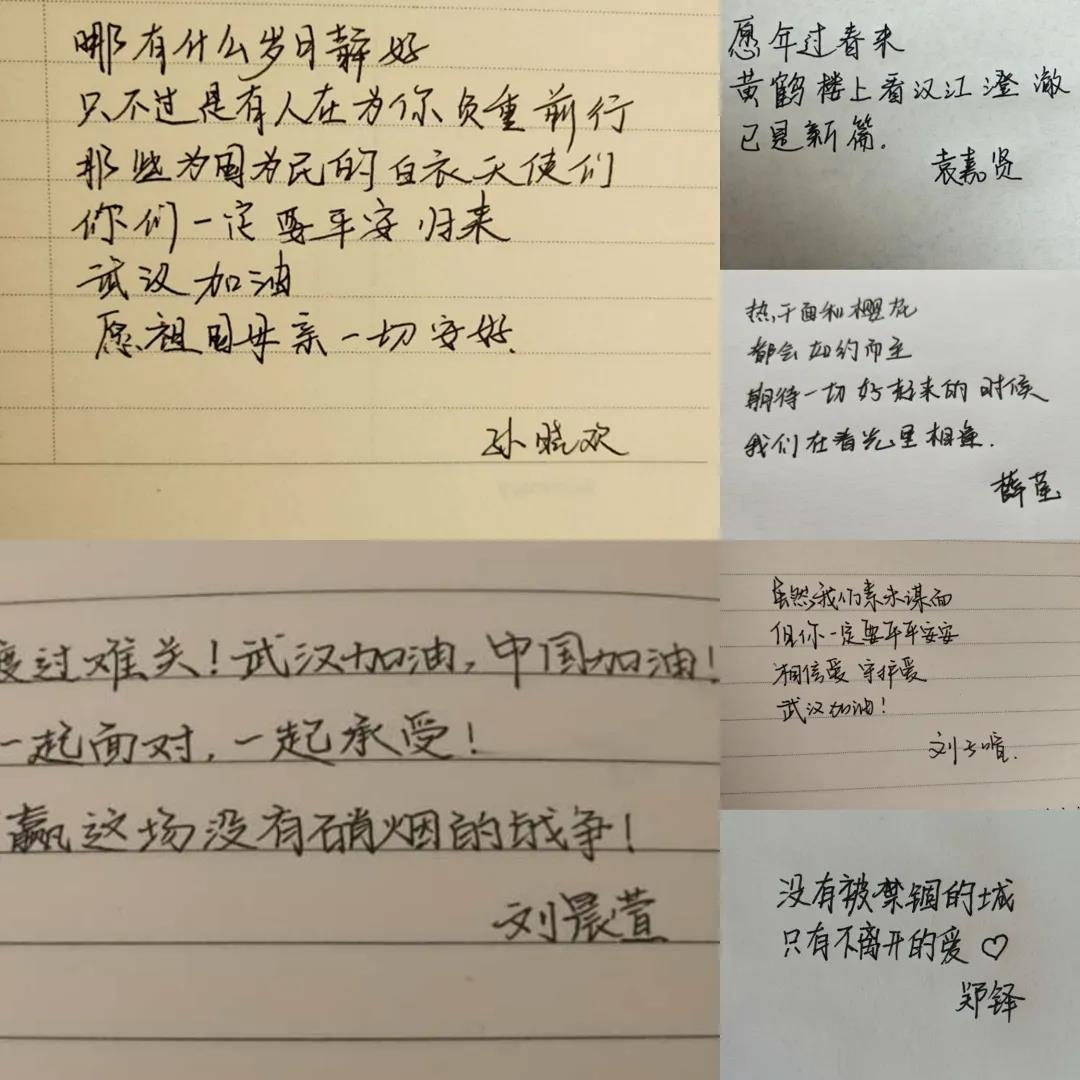 哪有什么岁月静好
只不过是有人在为你负重前行
那些为国为民的白衣天使们
你们一定要平安归来
武汉加油
愿祖国母亲一切安好.
孙晓欢
愿年过春来
黄鹤楼上看汉江澄澈
已是新篇.
袁嘉贤
热干面和樱花
都会如约而至
期待一切好起来的时候
我们在春光里相逢.
薛莹
度过难关!武汉加油,中国加油!
一起面对,一起承受!
赢这场没有硝烟的战争!
刘晨萱
虽然我们素未谋面
但你一定要平平安安
相信爱 守护爱
武汉加油!
刘
没有被禁锢的城
只有不离开的爱♡
郑铎